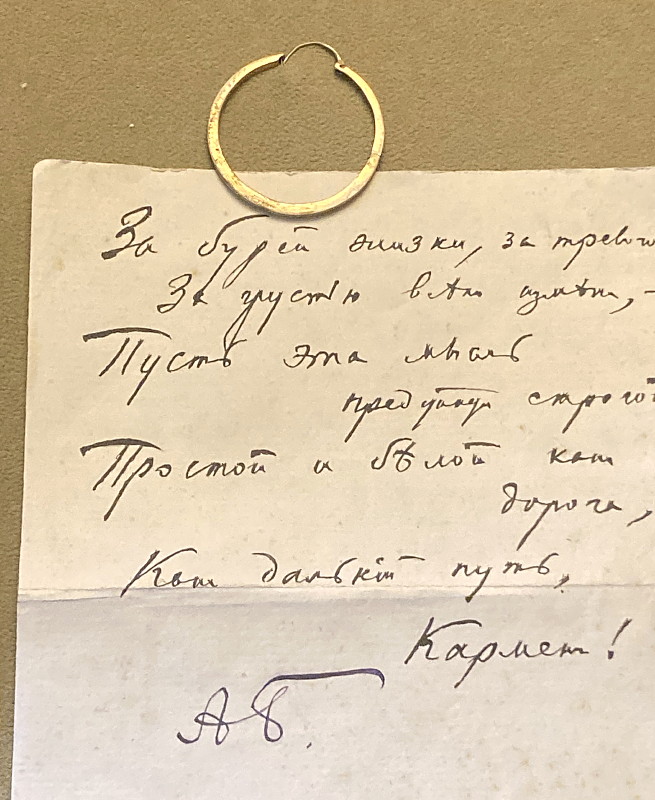 За бурей жизни, за тревого
За грустью всѣх измѣн, –
Пусть эта мысль
предстанет строгой
Простой и бѣлой как
дорога,
Как дальнiй путь,
Кармен!
АБ.